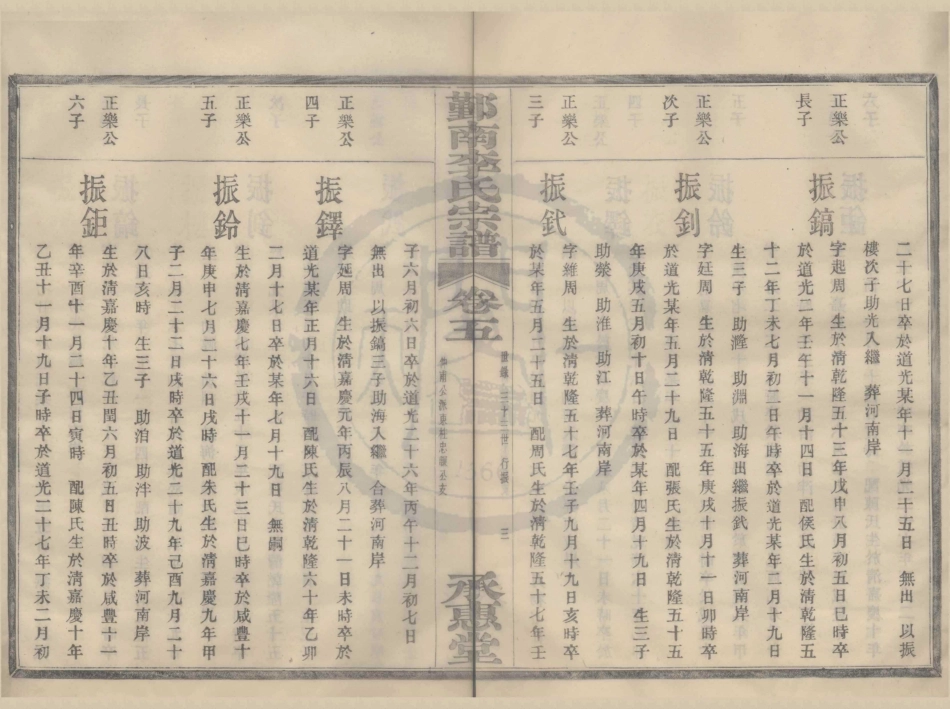 二十七日卒於道光某年十一月二十五日　無出　以振
樓次子助光入繼　葬河南岸
正樂公
長子
振鎬
字起周　生於清乾隆五十三年戊申八月初五日巳時卒
於道光二年壬午十一月十四日　配侯氏生於清乾隆五
十二年丁未七月初二日午時卒於道光某年二月十九日
生三子　助灐　助淵　助海出繼振釴　葬河南岸
正樂公
次子
振釗
字廷周　生於清乾隆五十五年庚戌十月十一日卯時卒
於道光某年五月二十九日　配張氏生於清乾隆五十五
年庚戌五月初十日午時卒於某年四月十九日　生三子
助榮　助淮　助江　葬河南岸
正樂公
三子
振釴
字維周　生於清乾隆五十七年壬子九月十九日亥時卒
於某年五月二十五日　配周氏生於清乾隆五十七年壬
鄞南李氏宗譜
卷五
世 行
三
承惠堂
子六月初六日卒於道光二十六年丙午十二月初七日
無出　以振鎬三子助海入繼　合葬河南岸
正樂公
四子
振鐸
字延周　生於清嘉慶元年丙辰八月二十一日未時卒於
道光某年正月十六日　配陳氏生於清乾隆六十年乙卯
二月十七日卒於某年七月十九日　無嗣
正樂公
五子
振鈴
生於清嘉慶七年壬戌十一月二十三日巳時卒於咸豐十
年庚申七月二十六日戌時　配朱氏生於清嘉慶九年甲
子二月二十二日戌時卒於道光二十九年己酉九月二十
八日亥時　生三子　助洎　助泮　助波　葬河南岸
正樂公
六子
振鉅
生於清嘉慶十年乙丑閏六月初五日丑時卒於咸豐十一
年辛酉十一月二十四日寅時　配陳氏生於清嘉慶十年
乙丑十一月十九日子時卒於道光二十七年丁未二月初